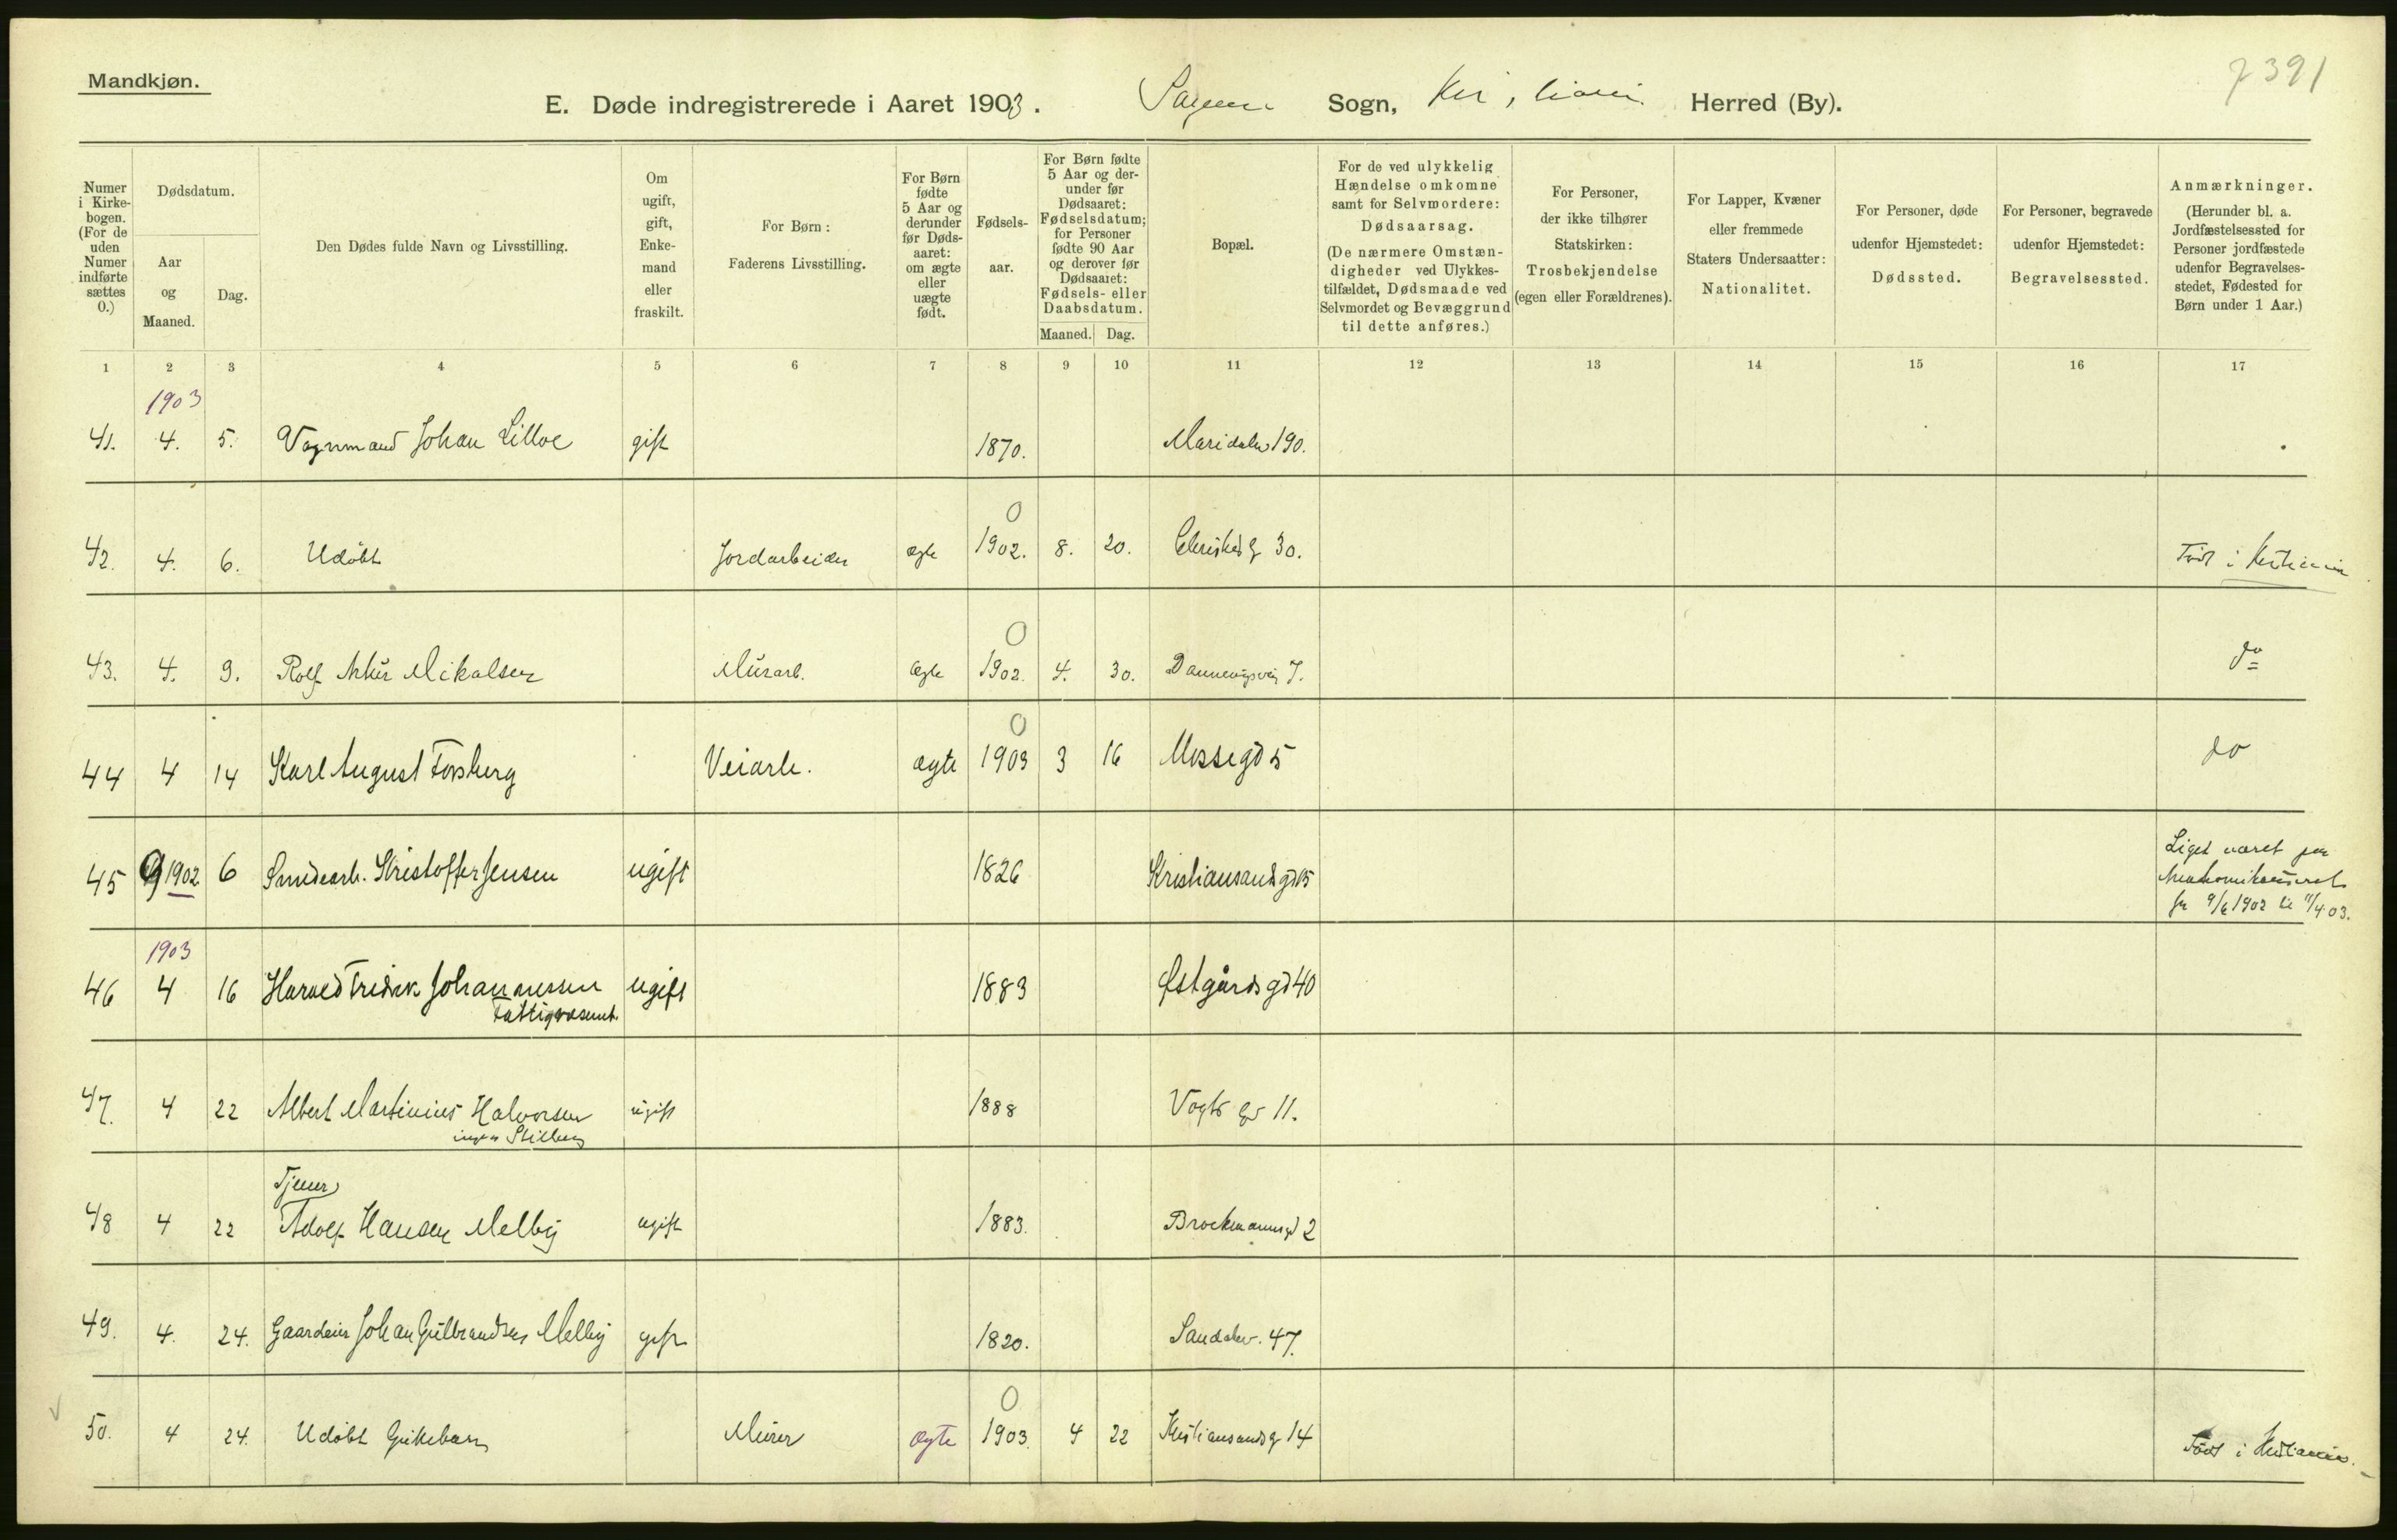 Mandkjøn.
7391
E. Døde indregistrerede i Aaret 1903. Sagene Sogn, Kristiania Herred (By).
Numer i Kirkebogen. (For de uden Numer indførte sættes 0.)
Dødsdatum.
Aar og Maaned.
Dag.
Den Dødes fulde Navn og Livsstilling.
Om ugift, gift, Enkemand eller fraskilt.
For Børn: Faderens Livsstilling.
For Børn fødte 5 Aar og derunder før Dødsaaret: om ægte eller uægte født.
Fødselsaar.
For Børn fødte 5 Aar og derunder før Dødsaaret: Fødselsdatum; for Personer fødte 90 Aar og derover før Dødsaaret: Fødsels- eller Daabsdatum.
Maaned. Dag.
Bopæl.
For de ved ulykkelig Hændelse omkomne samt for Selvmordere: Dødsaarsag. (De nærmere Omstændigheder ved Ulykkestilfældet, Dødsmaade ved Selvmordet og Bevæggrund til dette anføres.)
For Personer, der ikke tilhører Statskirken: Trosbekjendelse (egen eller Forældrenes).
For Lapper, Kvæner eller fremmede Staters Undersaatter: Nationalitet.
For Personer, døde udenfor Hjemstedet: Dødssted.
For Personer, begravede udenfor Hjemstedet: Begravelsessted.
Anmærkninger. (Herunder bl. a. Jordfæstelsessted for Personer jordfæstede udenfor Begravelsesstedet, Fødested for Børn under 1 Aar.)
1 2 3 4 5 6 7 8 9 10 11 12 13 14 15 16 17
1903
41. 4. 5. Vognmand Johan Lilloe gift 1870. Maridalsv 190.
0
42. 4. 6. Udøbt Jordarbeider ægte 1902. 8. 20. 30. Født i Kristiania
0
43. 4. 9. Rolf Artur Mikalsen Murarb. ægte 1902. 4. 30. Dannevigsvei 7. do
0
44 4 14 Karl August Forsberg Veiarb. ægte 1903 3 16 Mossegd 5 do
45 9 1902 6 Smedearb. Kristoffer Jensen ugift 1826 Kristiansandsgd 15 Liget været paa
fra 9/6 1902 til 11/4 03.
1903
46 4 16 Harald Fredrik Johannessen ugift 1883 Østgårds gd 40
Fattigvæsenet.
47. 4 22 Albert Martinius Halvorsen ugift 1888 Vogts gd 11.
ingen Stilling
Tjener
48 4 22 Adolf Hansen Melby ugift 1883. Brockmannsgd 2
49. 4. 24. Gaardeier Johan Gulbrandsen Melby gift 1820. Sandakv. 47.
0
50. 4 24. Udøbt Gutebarn Murer ægte 1903. 4 22 Kristiansandsg 14 Født i Kristiania.